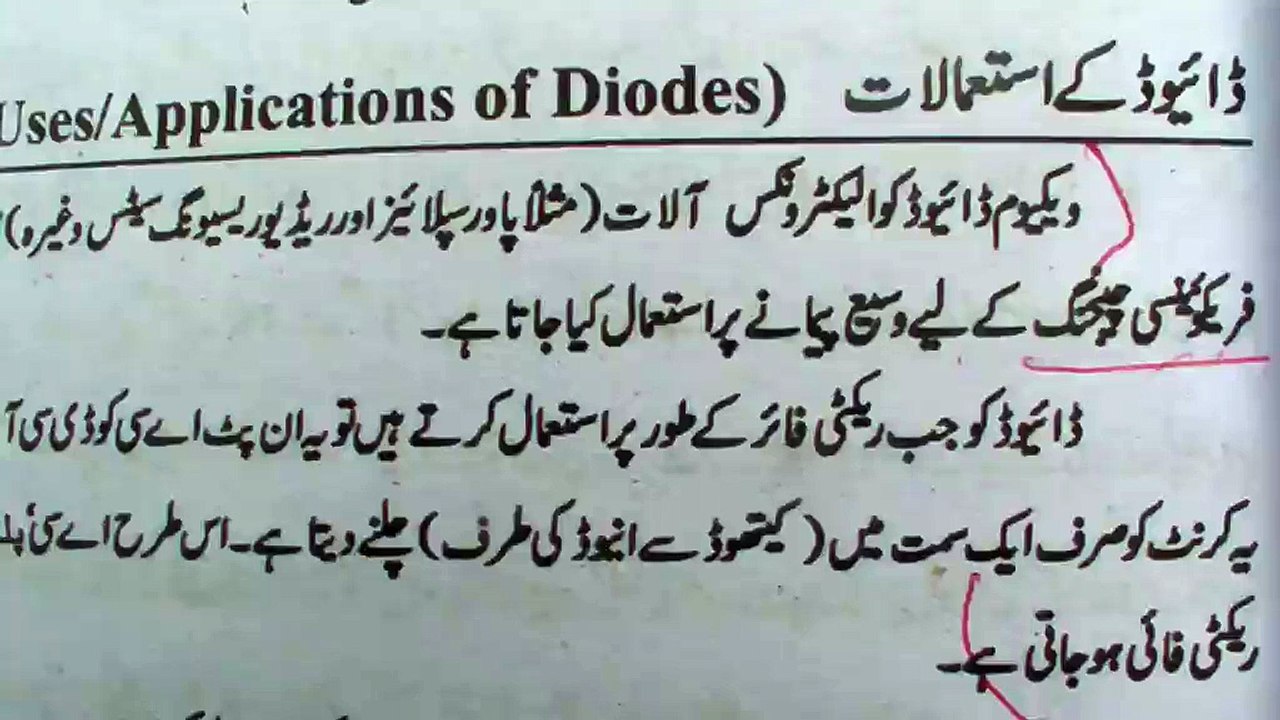 ڈائیوڈ کے استعمالات (Uses/Applications of Diodes)
ویکیوم ڈائیوڈ کو الیکٹرونکس آلات (مثلاً پاور سپلائیز اور ریڈیو ریسیونگ سیٹس وغیرہ)
فریکوئنسی چینجنگ کے لیے وسیع پیمانے پر استعمال کیا جاتا ہے۔
ڈائیوڈ کو جب ریکٹی فائر کے طور پر استعمال کرتے ہیں تو یہ ان پٹ اے سی کو ڈی سی آ
یہ کرنٹ کو صرف ایک سمت میں (کیتھوڈ سے اینوڈ کی طرف) چلنے دیتا ہے۔ اس طرح اے سی
ریکٹی فائی ہو جاتی ہے۔